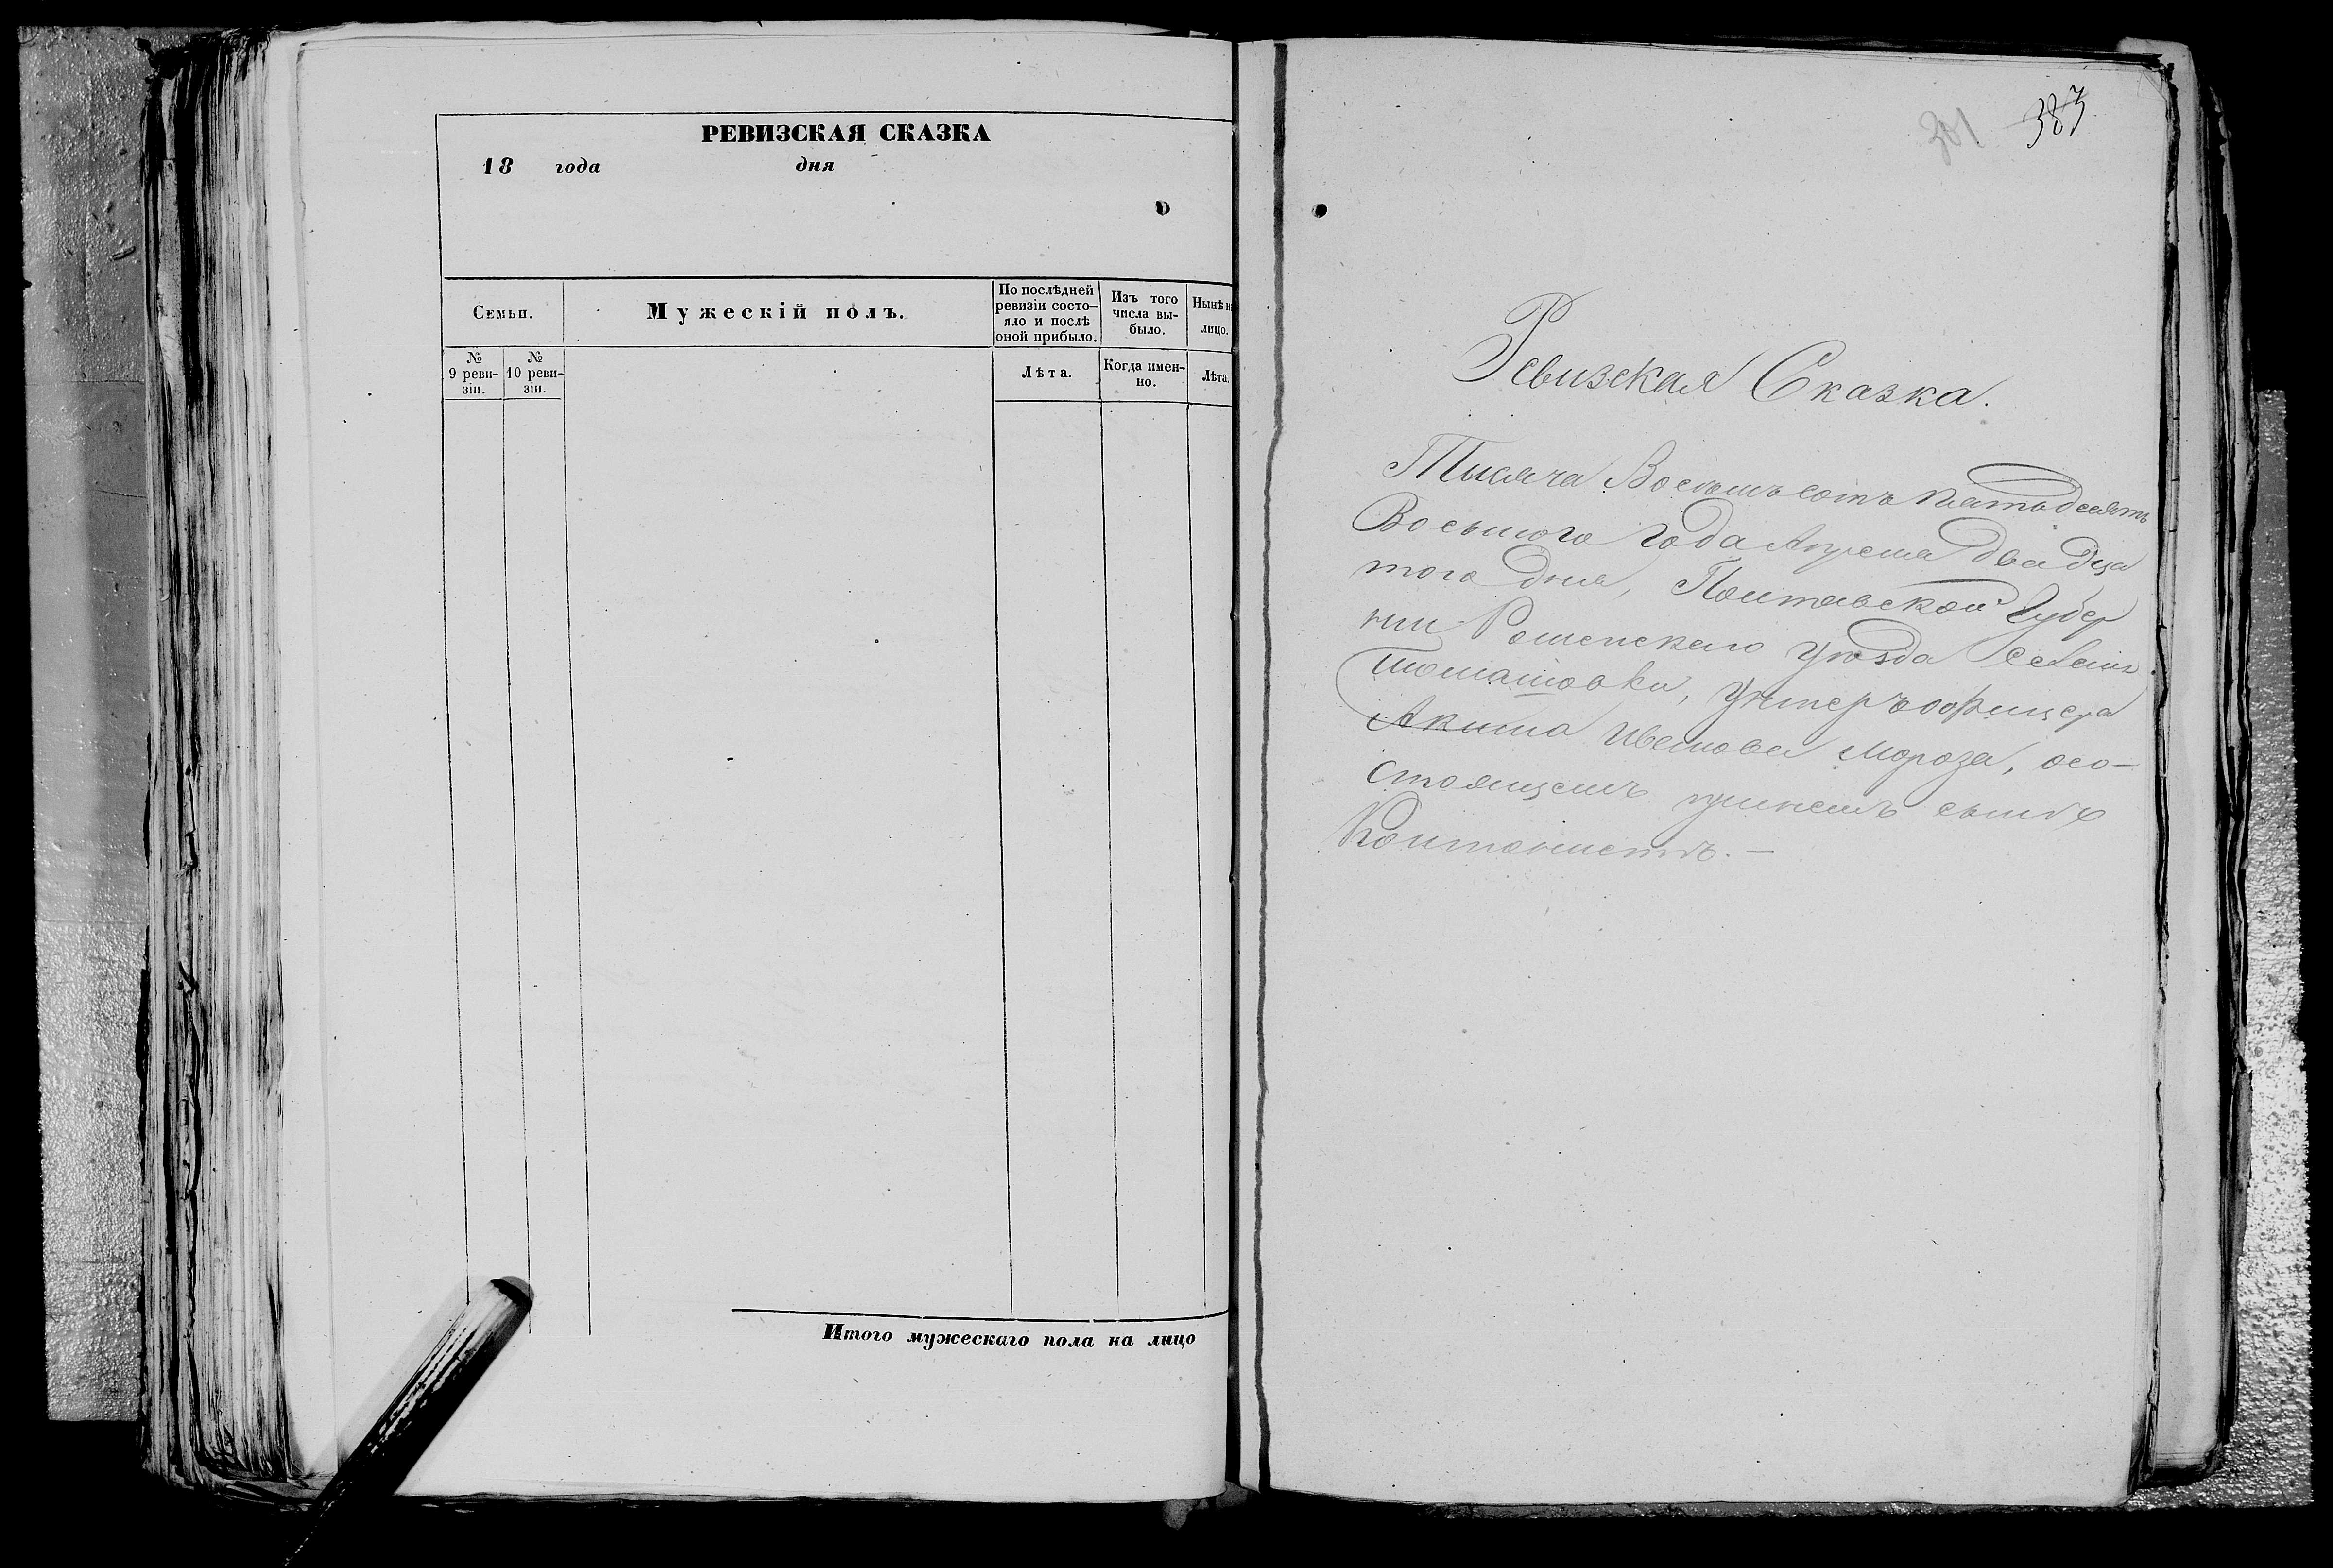 РЕВИЗСКАЯ СКАЗКА
18 года дня
Семьи.
Мужескій полъ.
По послѣдней
ревизіи состо–
яло и послѣ
оной прибыло.
Изъ того
числа вы–
было.
Нынѣ на
лицо.
№
9 реви–
зіи.
№
10 реви–
зіи.
Лѣта.
Когда имен–
но.
Лѣта.
Итого мужескаго пола на лицо
301 383
Ревизская Сказка.
Тысяча Восемь сотъ пятьдесятъ
Восьмого Года Апреля двадца
того Дня, Полтавской Губер
нии Роменскаго Уѣзда
Унтеръ офицера
Акима Иванова Мороза, осо–
стоящемъ принемъ сынѣ
Кантонистѣ. —